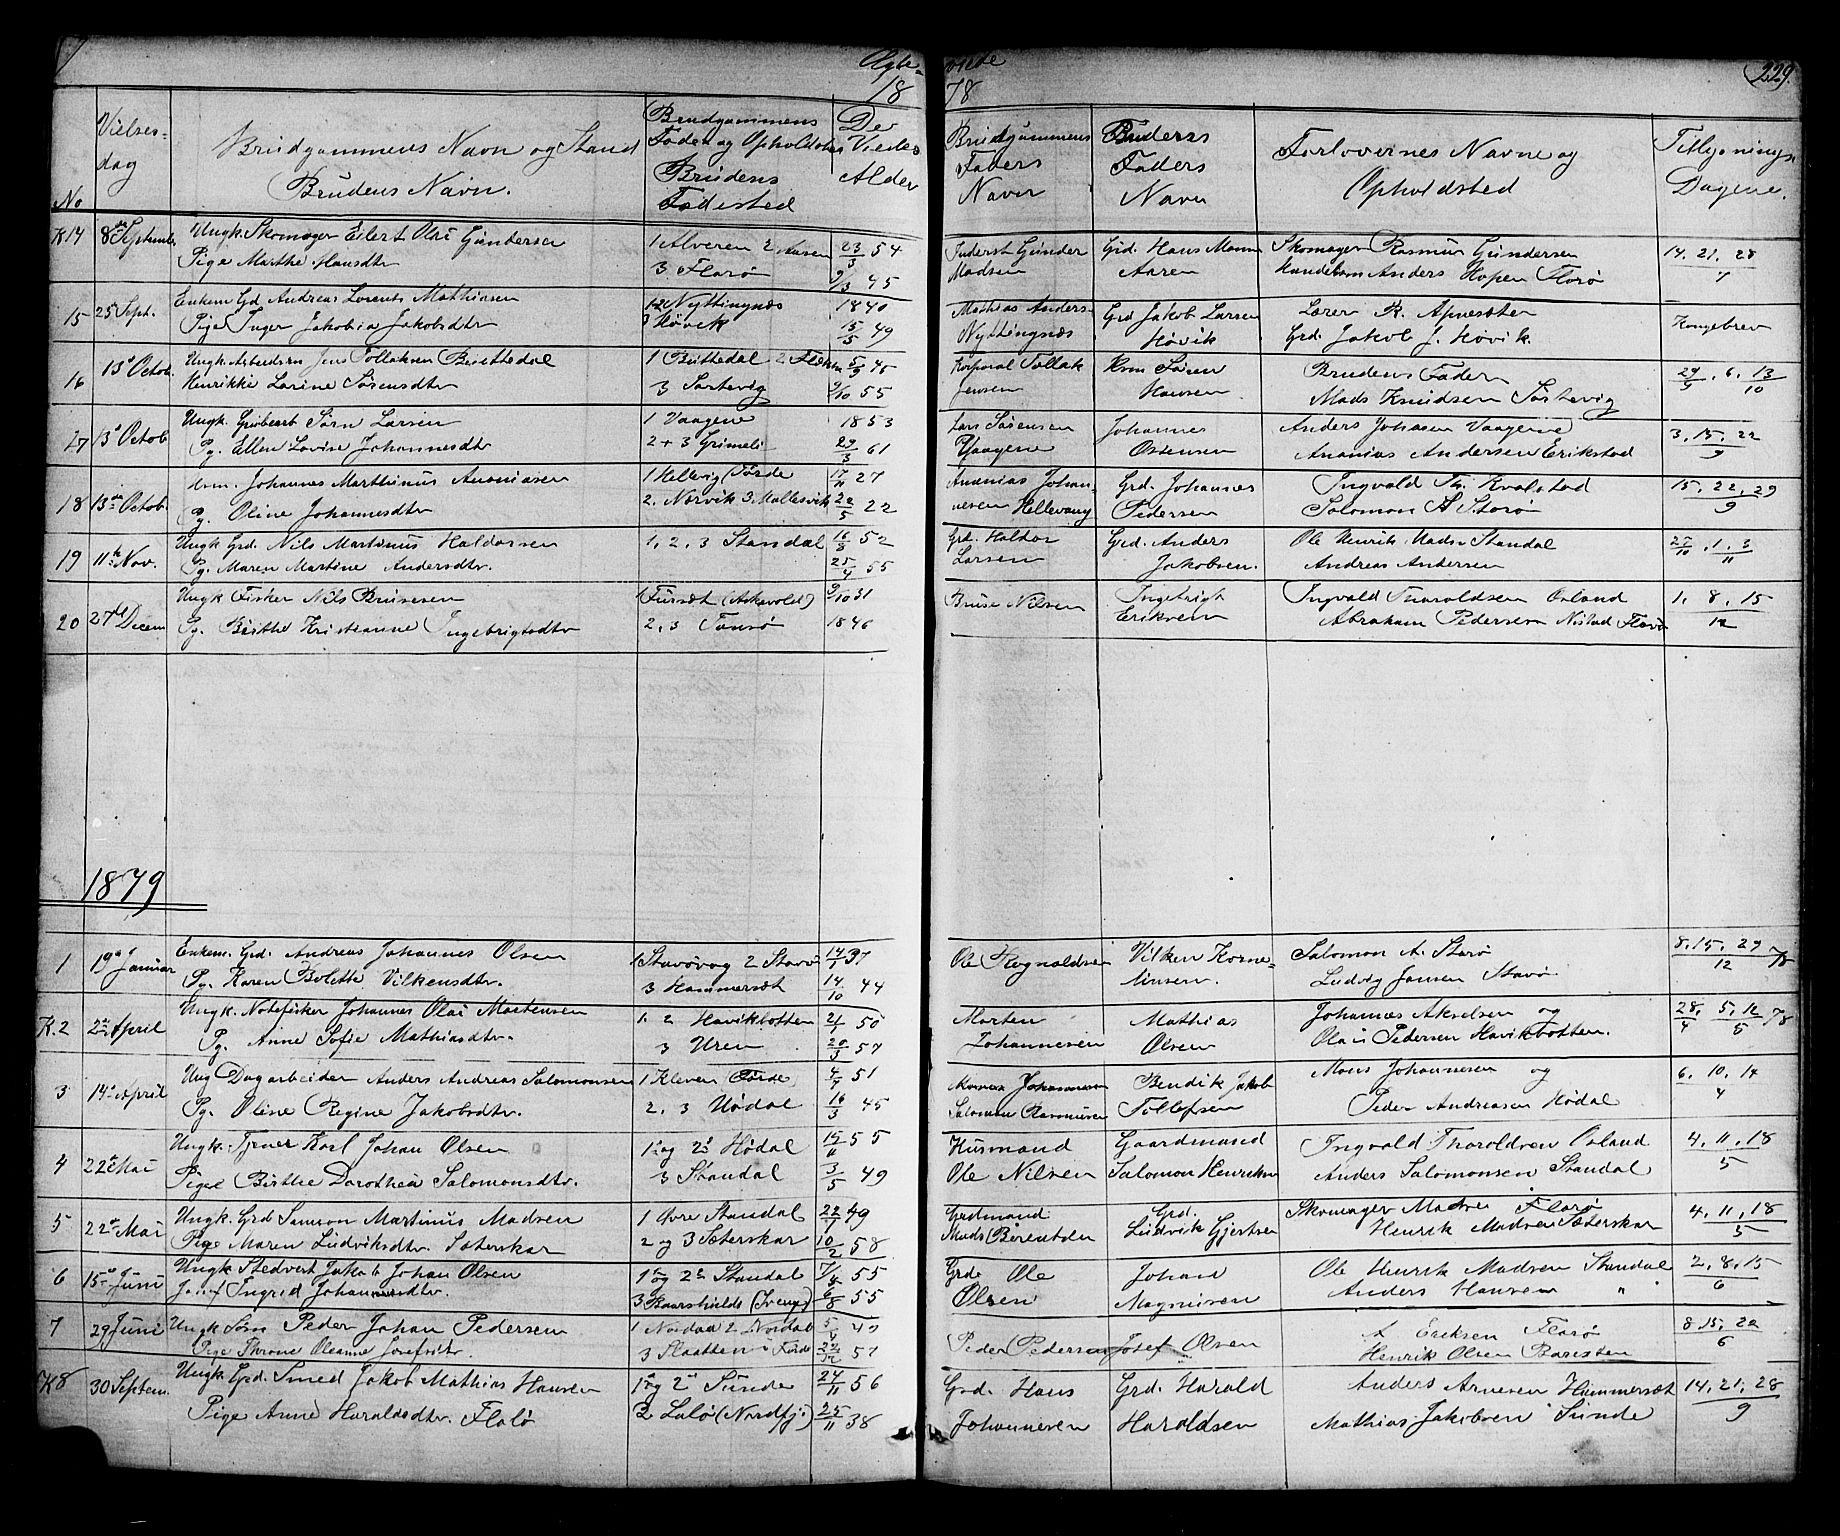 Ægte-
viede
18
78
229.
No
Vielses-
dag
Brudgommens Navn og Stand
Brudens Navn.
Brudgommens
Føde og Opholdssted
Brudens
Fødested
De
Viedes
Alder
Brudgommens
Faders
Navn
Bruders
Faders
Navn
Forlovernes Navne og
Opholdsted
Tillysnings
Dagene.
K14 8de Septemb. Ungk. Skomager Eilert Olai Gundersen 1 Alveren 2 Aasen 23/3 54 Gunder Grd. Hans Monn Skomager Rasmus Gundersen 14, 21, 28
Pige Marthe Hansdtr 3 Florø 9/3 45 Madsen Aaren Anders Hopen Florø 7
15 25 Sept. Enkem Gd Andreas Lorents Mathiasen 1-2 Nyttingnæs 1840 Mathias Anders Grd Jakob Larsen Lærer R. Kongebrev
Pige Inger Jakobia Jakobsdtr 3 Høvik 15/5 49 Nyttingnæs Høvik Grd. Jakob J. Hovik
16 13d Octob. Ungk. Arbeidsm Jens Tollaksen Bruttedal 1 Buttedal 2 5/9 45 Korporal Tollak Hsm Søren Brudens Fader 29/9, 6, 13
Henrikke Larine Sørensdtr 3 Sortevig 9/10 55 Jensen Hansen Mads Knudsen Sortevig 10
27 13d Octob Ungk. Sørn Larsen 1 Vaagene 1853 Lars Sørensen Johannes Anders Johasen Vaagene 3, 15, 22
Pg. Ellen Lovise Johannesdtr 2 + 3 Grimeli 29/3 61 Vaagene Ostensen Ananias Andersen Erikstad 9
18 13de Octob. Johannes Marthinus Ananiasen 1 Hellevig (Førde 17/11 27 Ananias Johan- Grd. Johannes Ingvald Th. Kvalstad 15, 22, 29
Pg. Oline Johannesdtr 2. Norvik 3. Mallesvik 22/5 22 nesen Hellevang Pedersen Salomon A Storø 9
19 11te Nov. Ungk Grd. Nils Martinus Haldorsen 1, 2, 3 Standal 16/3 52 Grd. Haldor Grd. Anders Ole Henrik Mads. Standal 27/10, 1, 3
Pg. Maren Martine Andersdtr. 25/4 55 Larsen Jakobsen. Andreas Andersen 11
20 27de Decem Ungk Fisker Nils Brusesen 1 Fursæt (Askevold) 9/10 31 Bruse Nilsen Ingebrigt Ingvald Thoroldsen Osland 1, 8, 15
Pg. Birthe Kristianne Ingebrigtsdtr 2, 3 Tansø 1846 Eriksen Abraham Pedersen Nistad Florø 12
1879
1 19de Januar Enkem. Grd. Andreas Johannes Olsen 1 Stavøvog 2 Stavø 14/1 37 Ole Rognaldsen Vilken Korne- Salomon A. Storø 8, 15, 29 78
Pg. Karen Bolette Vilkensdtr. 3 Hammersæt 14/10 44 liusen. Ludvig Jansen Stavø 12
K.2 2den April Ungk. Notefisker Johannes Olai Martensen 1. 2 Havikbotten 21/1 50 Morten Mathias Johannes Akselsen og 28, 5, 12 78
Pg. Anne Sofie Mathiasdtr. 3 Uren 20/3 57 Johannesen Olsen Olai Pedersen Havikbotten. 4 5
3 14de April Ung Dagarbeider Anders Andreas Salomonsen 1 Kleven Førde 4/7 51 Johannesen Bendik Jakob Mons Johannesen og 6, 10, 14
Pg. Oline Regine Jakobsdtr. 2, 3 Hødal 16/3 45 Salomon Rasmusen Tollefsen Peder Andreasen Hødal 4
4 22de Mai Ungk. Tjener Karl Johan Olsen 1 og 2 Hødal 15/11 55 Husmand Gaardmand Ingvald Thoroldsen Osland 4, 11, 18
Pige Birthe Dorothea Salomonsdtr. 3 Standal 3/5 49 Ole Nilsen Salomon Henriksen Anders Salomonsen Standal 5
5 22de Mai Ungk. Grd Samson Martinus Madsen 1 Øvre Standal 22/1 49 Grdmand Grd. Skomager Madsen Florø 4, 11, 18
Pige Maren Ludviksdtr. Sæterskar 2 og 3 Sæterskar 10/2 58 Mads Børentsen Ludvik Gjertsen Henrik Madsen Sæterskar 5
6 15de Juni Ungk Stedvert Jakob Johan Olsen 1 og 2 Standal 7/4 55 Grde Ole Johan Ole Henrik Madsen Standal 2, 8, 15
Ingrid Johannesdtr. 3 6/8 55 Olsen Magnusen Anders Hansen " 6
7 29 Juni Ungk Søn Peder Johan Pedersen 1 Nordal 2 Nordal 5/4 Peder Pedersen Josef Olsen A Eriksen Florø 8, 15, 22
Pige Throne Oleanne Josefsdtr. 3 Slaatten 22/12 57 Henrik Olsen Baresten 6
K8 30 Septem. Ungk. Grd. Smed Jakob Mathias Hansen 1 og 2 Sunde 24/11 56 Grd. Hans Grd. Harald Anders Arnesen Hammersæt 14, 21, 28
Pige Anne Haraldsdtr. Florø 2 Lalø (Nordfj.) 25/11 38 Johannesen Haroldsen Mathias Jakobsen Sunde 9